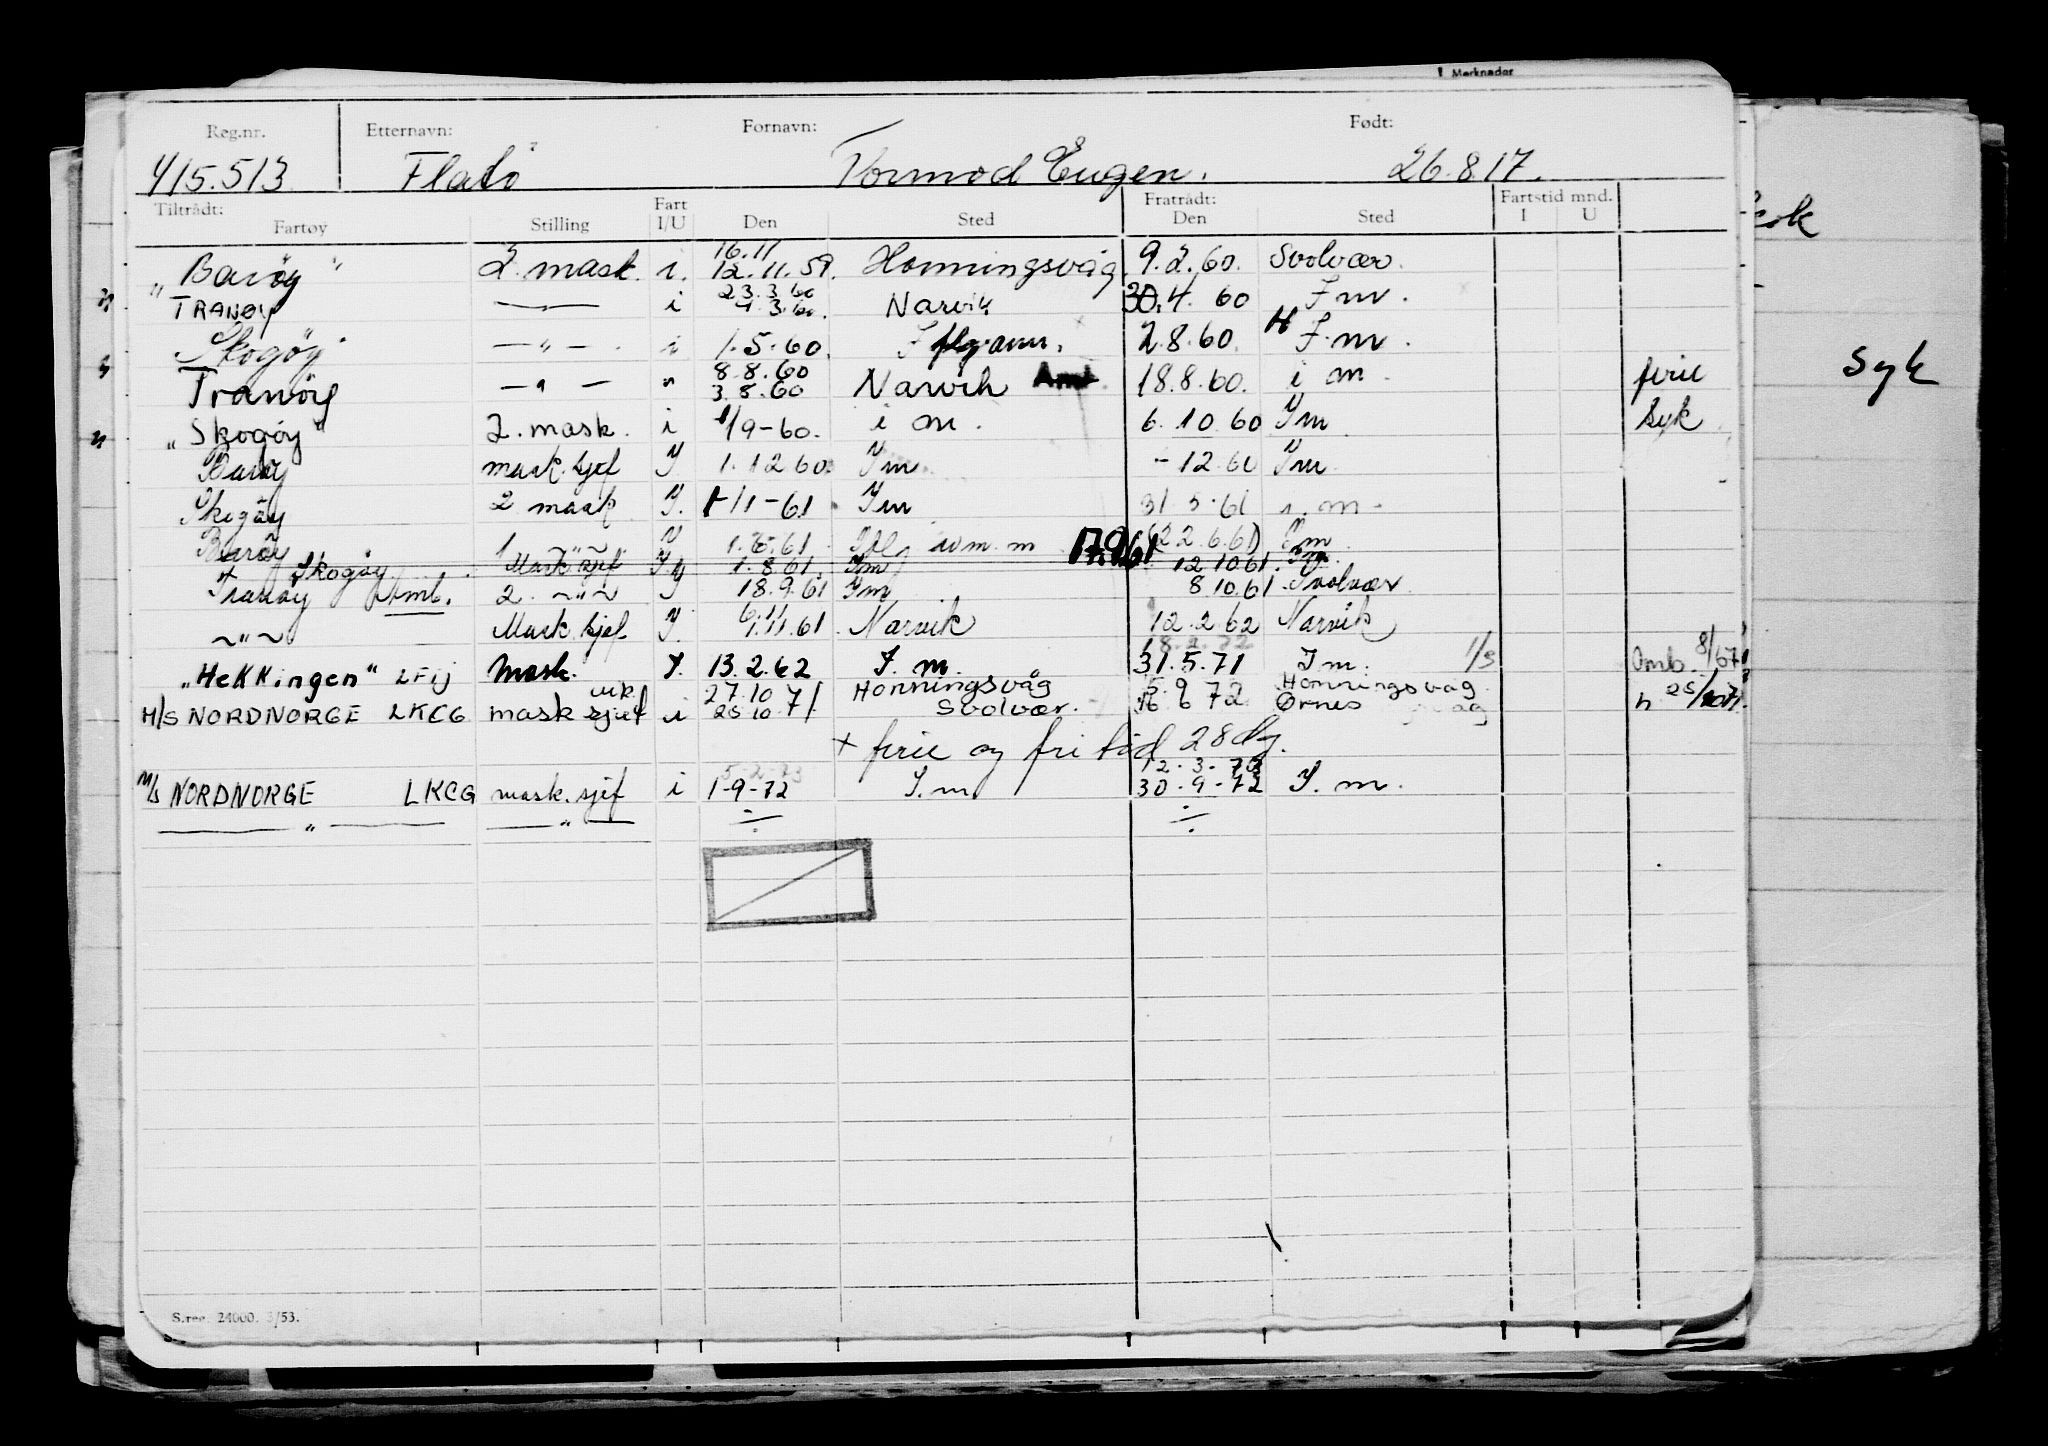 Merknader
Reg.nr. Etternavn: Fornavn: Født:
415.513 Flatö Tormod Eugen. 26.8.17.
Tiltrådt: Fart Fratrådt: Fartstid mnd.
Fartøy Stilling I/U Den Sted Den Sted I U
16.11
"Baröy" 2. mask. i. 12.11.59. Honningsvåg 9.2.60. Svolvær.
23.3.60
TRANØY — i 4.3.60. Narvik 30.4.60 I m.
Skogöy — " — . i 1.5.60. 2.8.60. H I.m.
8.8.60
Tranöy — " — " 3.8.60 Narvik Amt 18.8.60. i m. ferie
"Skogöy" 2. mask. i 1/9-60. i m. 6.10.60 I m syk
Baröy mask.sjef I. 1.12.60. I m - 12.60 I m.
Skogöy 2 mask I. 1-/1-61 I m 31 5.61 i. m.
Baröy 1 ~"~ I 1.6.61. m 17.9.61 (22.6.61) I m
Skogöy Mask.sjef I 1.8.61. I m 12 10 61.
Tranöy Amb. 2. ~"~ I 18.9.61 I m 8.10.61. Svolvær
~"~ Mask.sjef I. 1.11.61. Narvik 12.2.62 Narvik
"HeKKingen" LFIJ Mask. I. 13.2.62 I. m. 31.5.71 I m. 1/5 Omb. 8/6 71
vik. 27.10 Honningsvåg 5.9.72 Honningsvåg
H/S NORDNORGE LKCG mask sjef i 25 10.71 Svolvær. 16 6 72 Ørnes h 25/10 71.
+ ferie og fri tid 28 dg.
5-2-73 12-3-73
M/S NORDNORGE LKCG mask.sjef i 1-9-72 I.m 30-9-72 I. m.
— " — — " — ÷ ÷
S.reg. 24000. 3/53.
kok
Syk